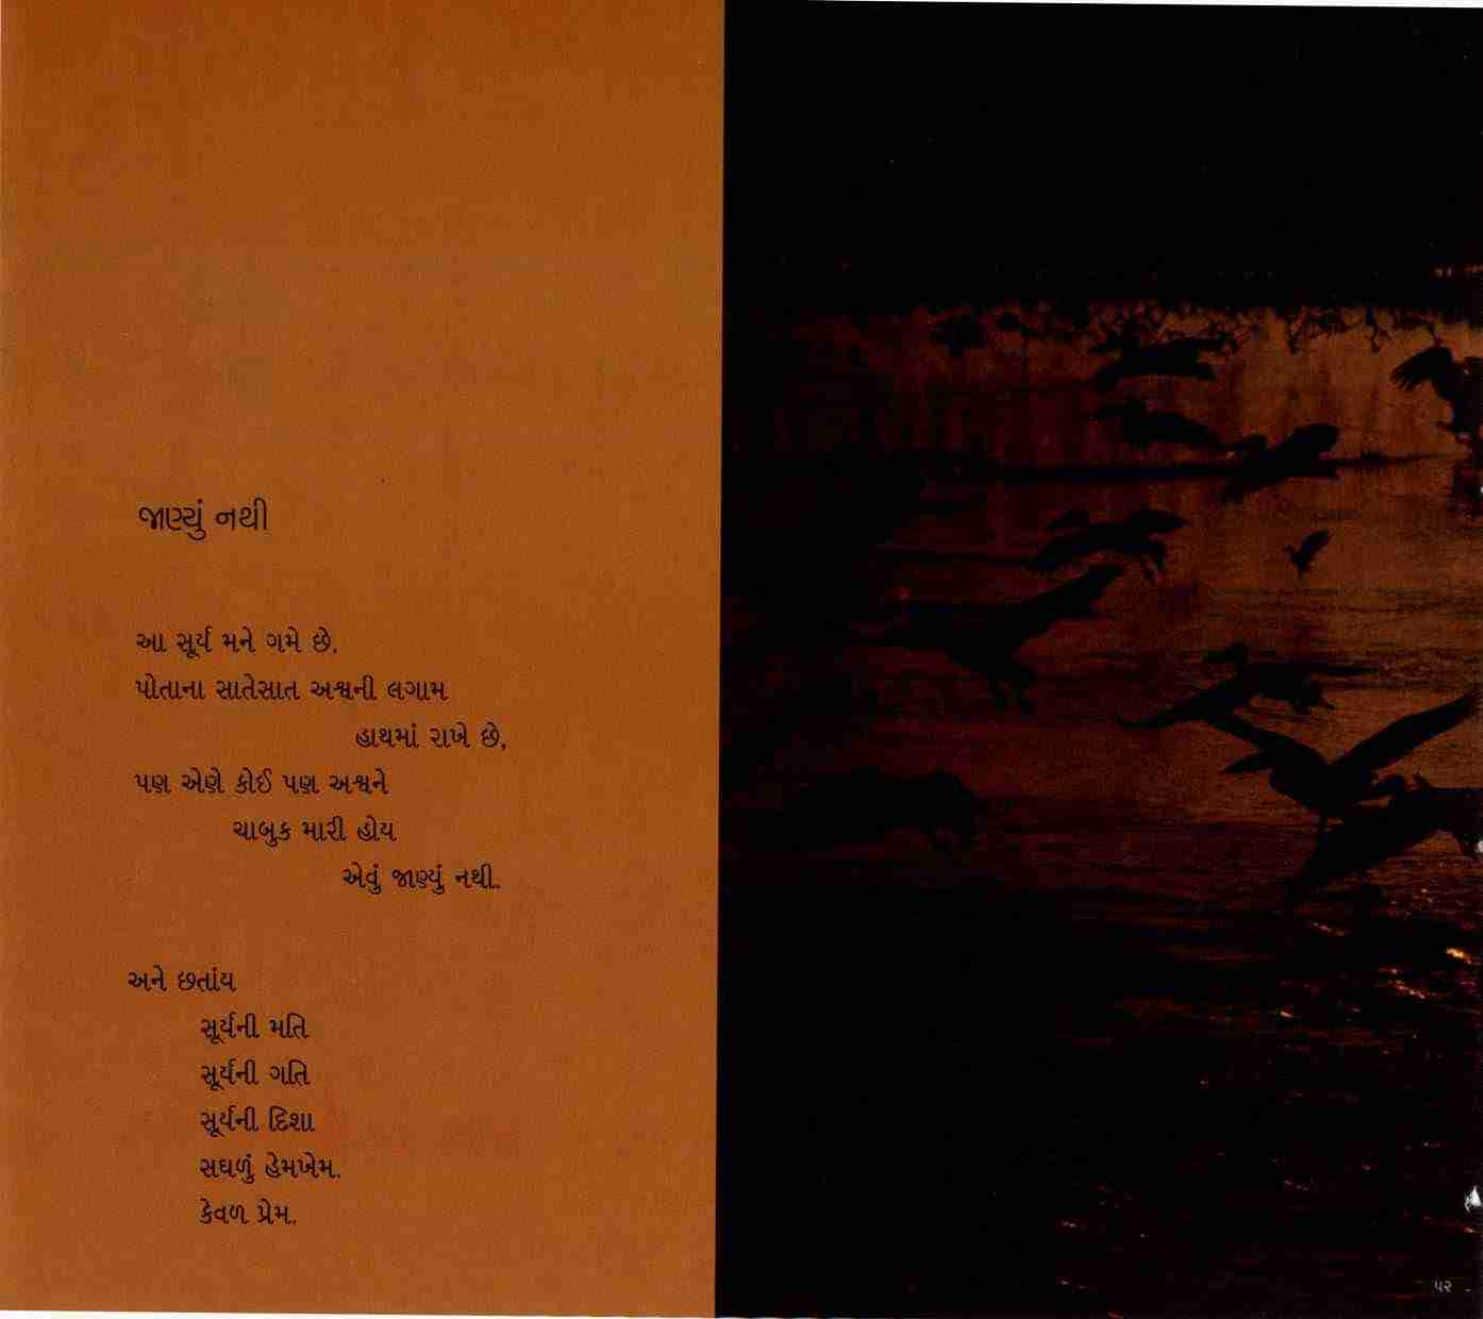 જાણ્યું નથી
આ સૂર્ય મને ગમે છે.
પોતાના સાતેસાત અશ્વની લગામ
હાથમાં રાખે છે,
પણ એણે કોઈ પણ અશ્વને
ચાબુક મારી હોય
એવું જાણ્યું નથી.
અને છતાંય
સૂર્યની મતિ
સૂર્યની ગતિ
સૂર્યની દિશા
સઘળું હેમખેમ.
કેવળ પ્રેમ.
૫૨